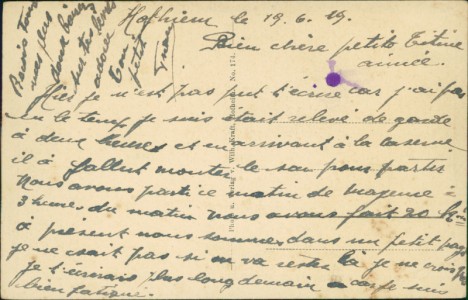 Hofhiem le 19.6.19.
Bien chère petite Titine
aimée.
Hier je n'est pas put t'écrire car j'ai pas
eu le temps je suis était relevé de garde
à deux heures et en arrivant à la caserne
il à fallut monter le sac pour partir
Nous avons partie ce matin de Mayence à
3 heures du matin nous avons fait 20
à present nous sommes dans un petit pays
je ne sait pas si on va rester là je ne crois pas
je t'écrirais plus long demain car je suis
bien fatigué.
Reçois
mes plus
doux baisers
sur tes lèvres
adorée
Ton
petit